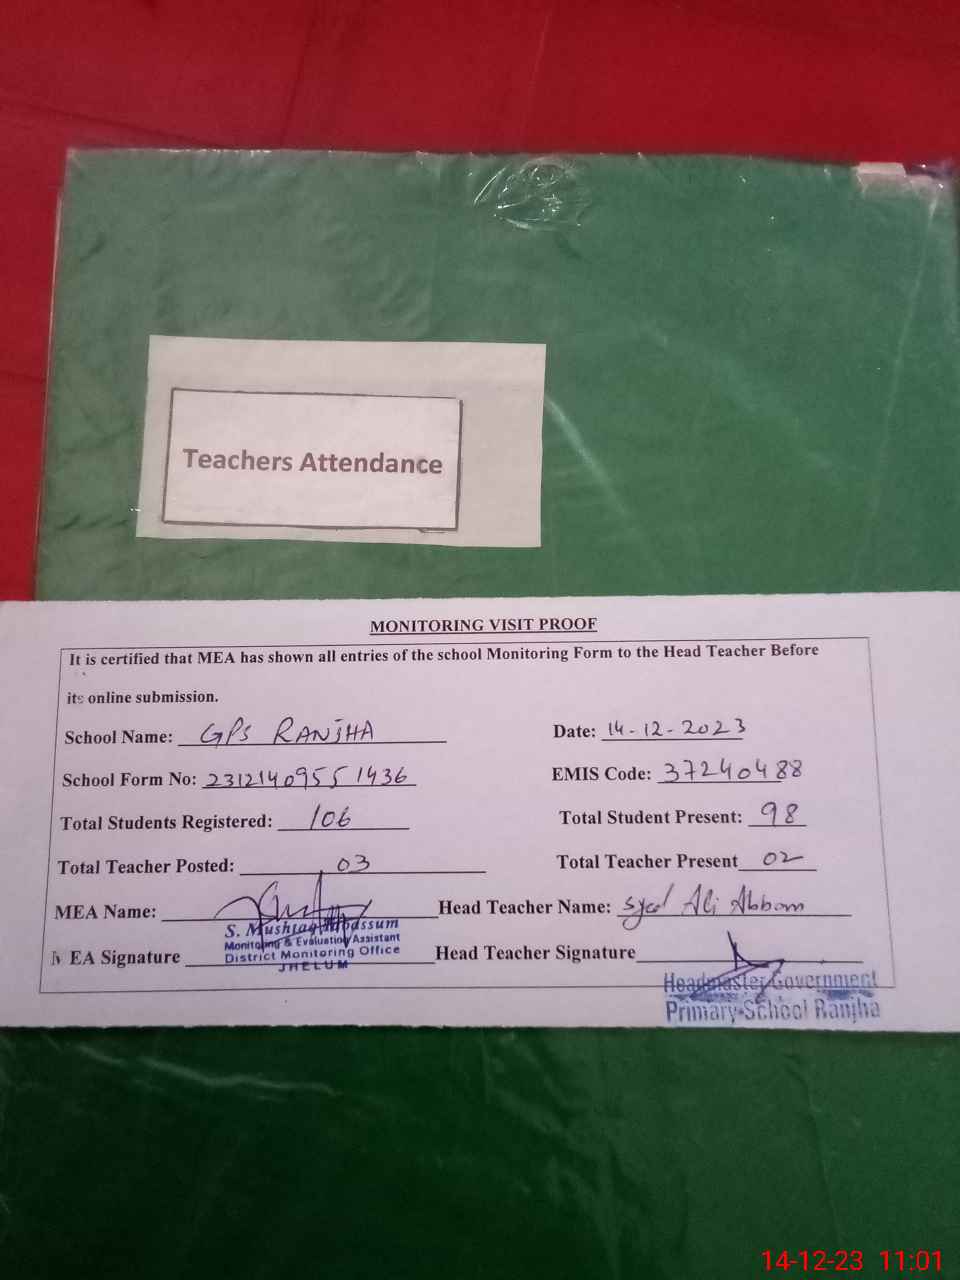 Teachers Attendance
MONITORING VISIT PROOF
It is certified that MEA has shown all entries of the school Monitoring Form to the Head Teacher Before
its online submission.
School Name: GPS RANJHA Date: 14-12-2023
School Form No: 23121409551436 EMIS Code: 37240488
Total Students Registered: 106 Total Student Present: 98
Total Teacher Posted: 03 Total Teacher Present 02
MEA Name: Head Teacher Name: Syed Ali Abbas
S. Mushtaq Tabassum
Monitoring & Evaluation Assistant
EA Signature District Monitoring Office Head Teacher Signature
JHELUM
Headmaster Government
Primary School Ranjha
14-12-23 11:01